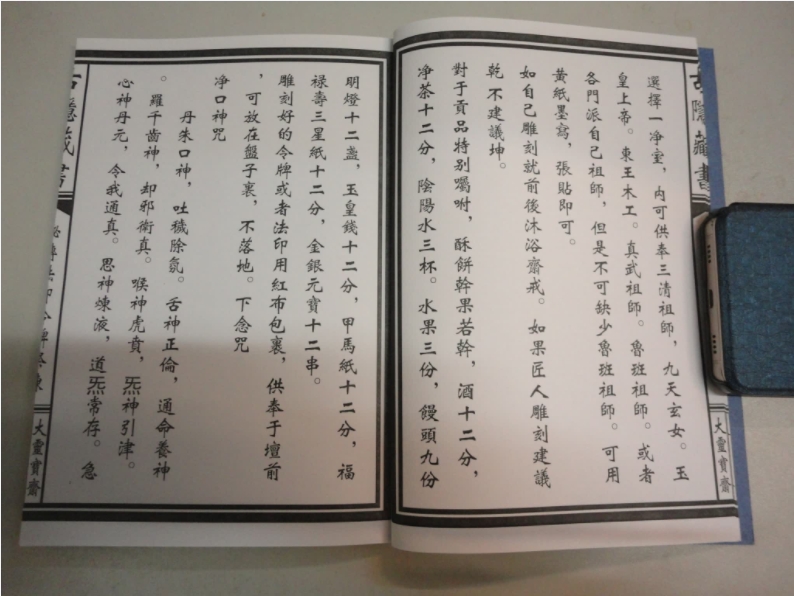 選擇一净室，内可供奉三清祖師，九天玄女。玉
皇上帝。東王木工。真武祖師。魯班祖師。或者
各門派自己祖師，但是不可缺少魯班祖師。可用
黄紙墨寫，張貼即可。
如自己雕刻就前後沐浴齋戒。如果匠人雕刻建議
乾不建議坤。
對于貢品特别囑咐，酥餅幹果若幹，酒十二分，
净茶十二分，陰陽水三杯。水果三份，饅頭九份
大靈寳齋
明燈十二盞，玉皇錢十二分，甲馬紙十二分，福
禄壽三星紙十二分，金銀元寳十二串。
雕刻好的令牌或者法印用紅布包裹，供奉于壇前
，可放在盤子裏，不落地。下念咒
净口神咒
丹朱口神，吐穢除氛。舌神正倫，通命養神
。羅千齒神，却邪衛真。喉神虎賁，炁神引津。
心神丹元，令我通真。思神煉液，道炁常存。急
大靈寳齋